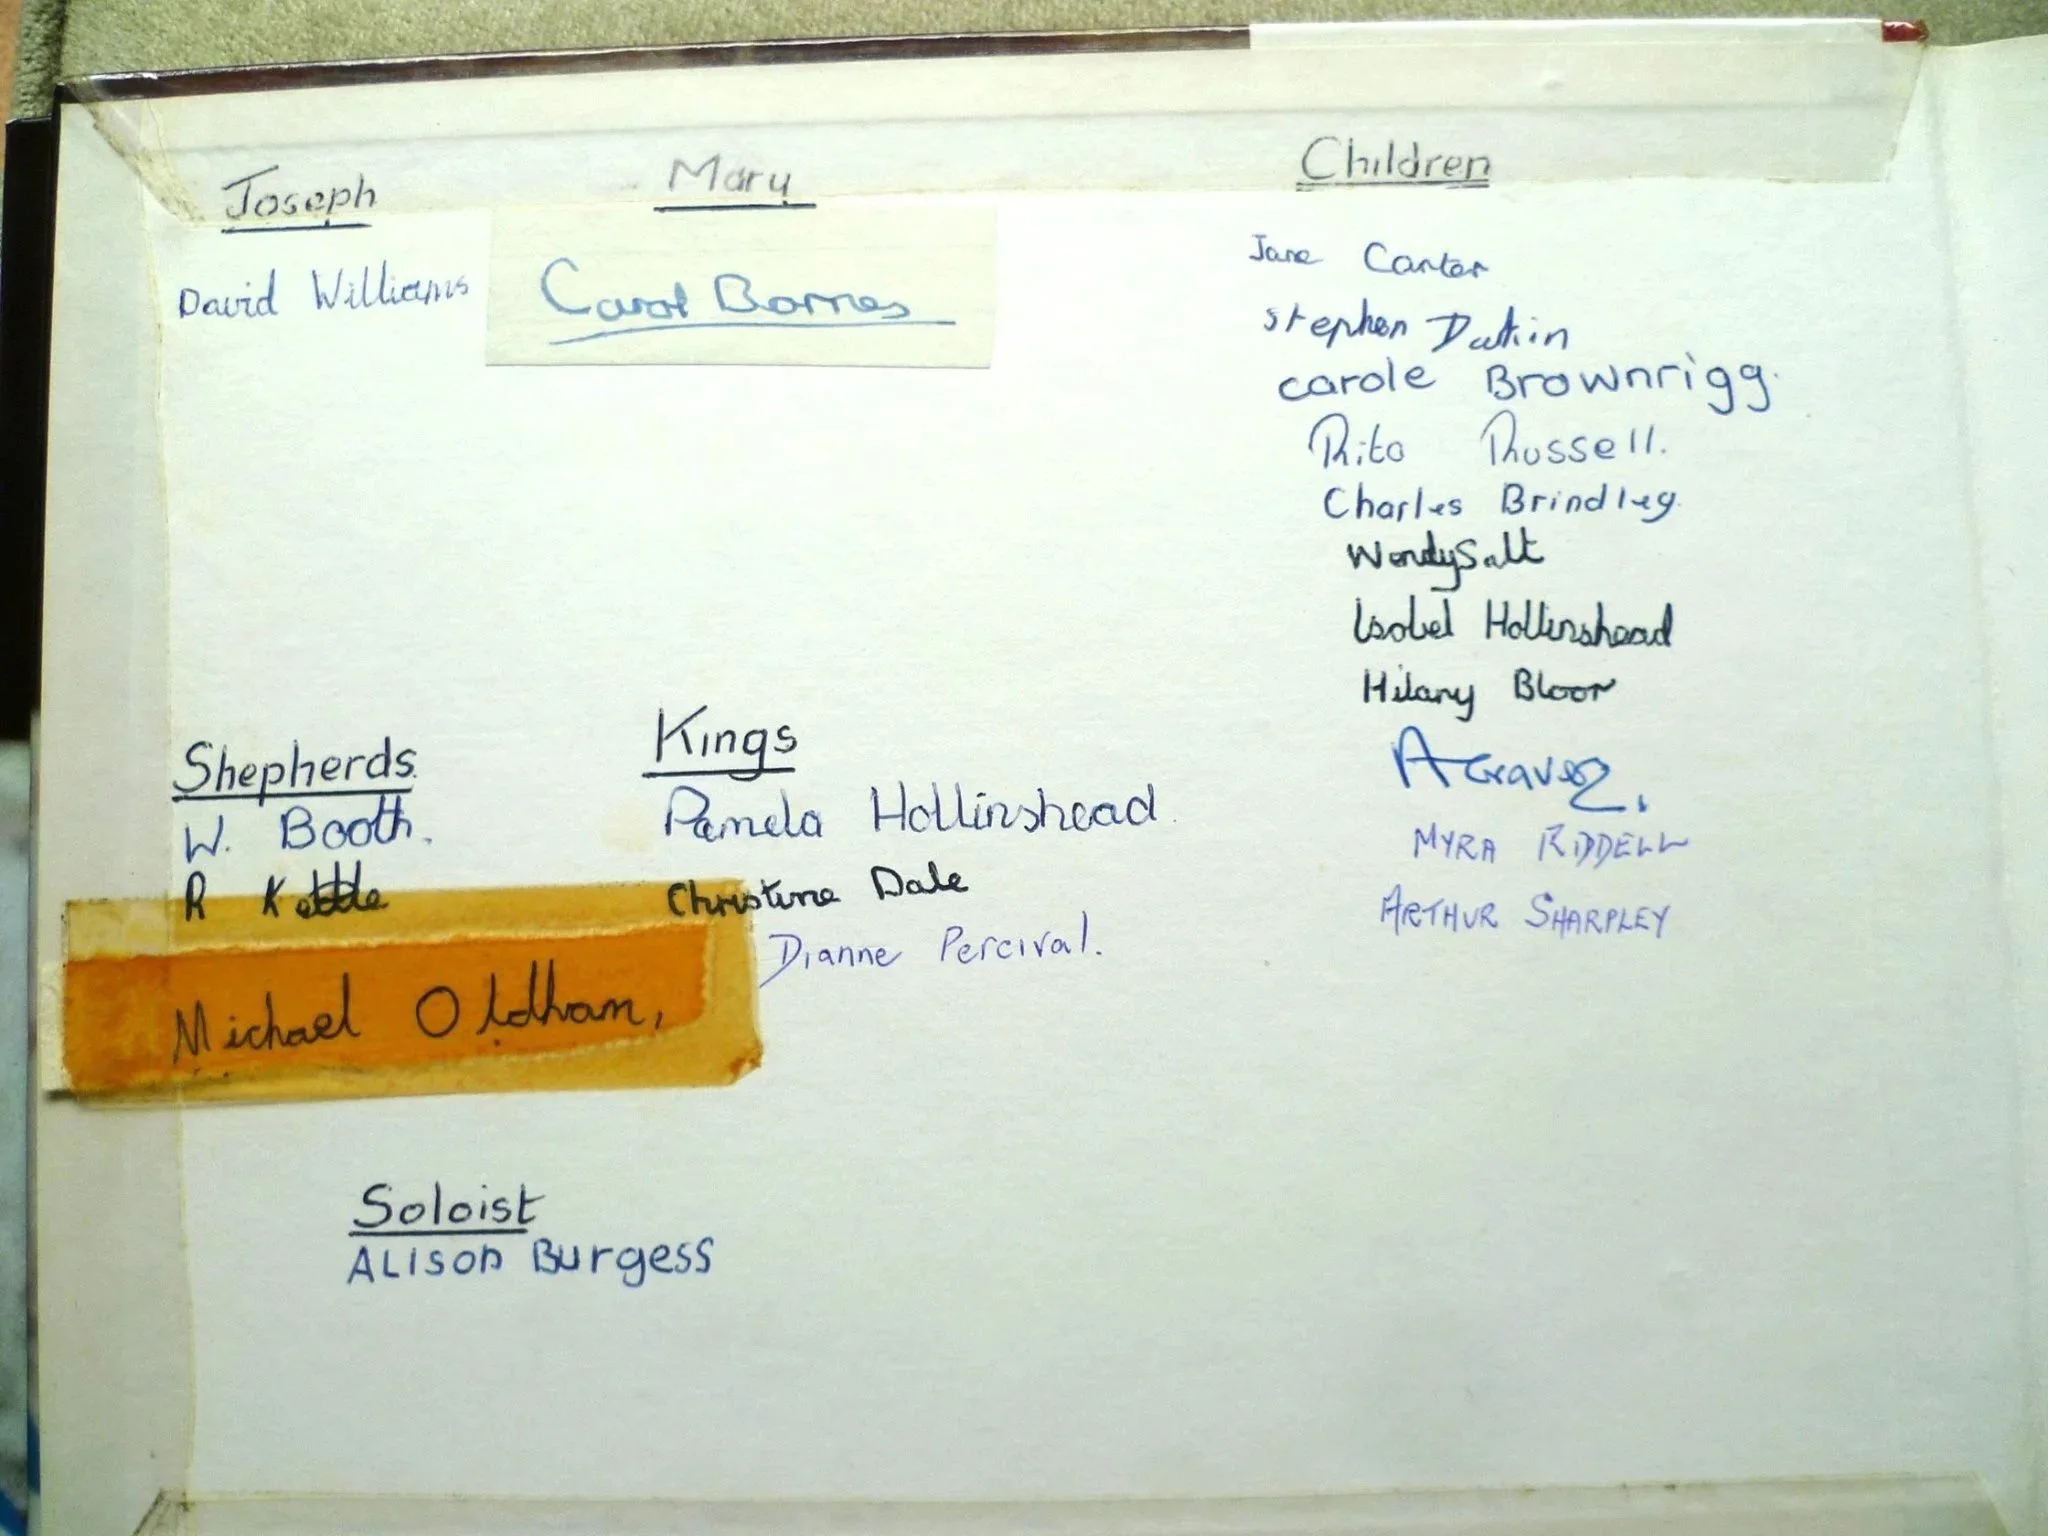 Joseph
David Williams
Mary
Carol Barnes
Children
Jane Carter
Stephen Dakin
Carole Brownrigg.
Rita Russell.
Charles Brindley.
Wendy Salt
Isobel Hollinshead
Hilary Bloor
A Graves,
MYRA RIDDELL
ARTHUR SHARPLEY
Shepherds
W. Booth.
R Kettle
Michael Oldham,
Kings
Pamela Hollinshead.
Christine Dale
Dianne Percival.
Soloist
ALISON Burgess